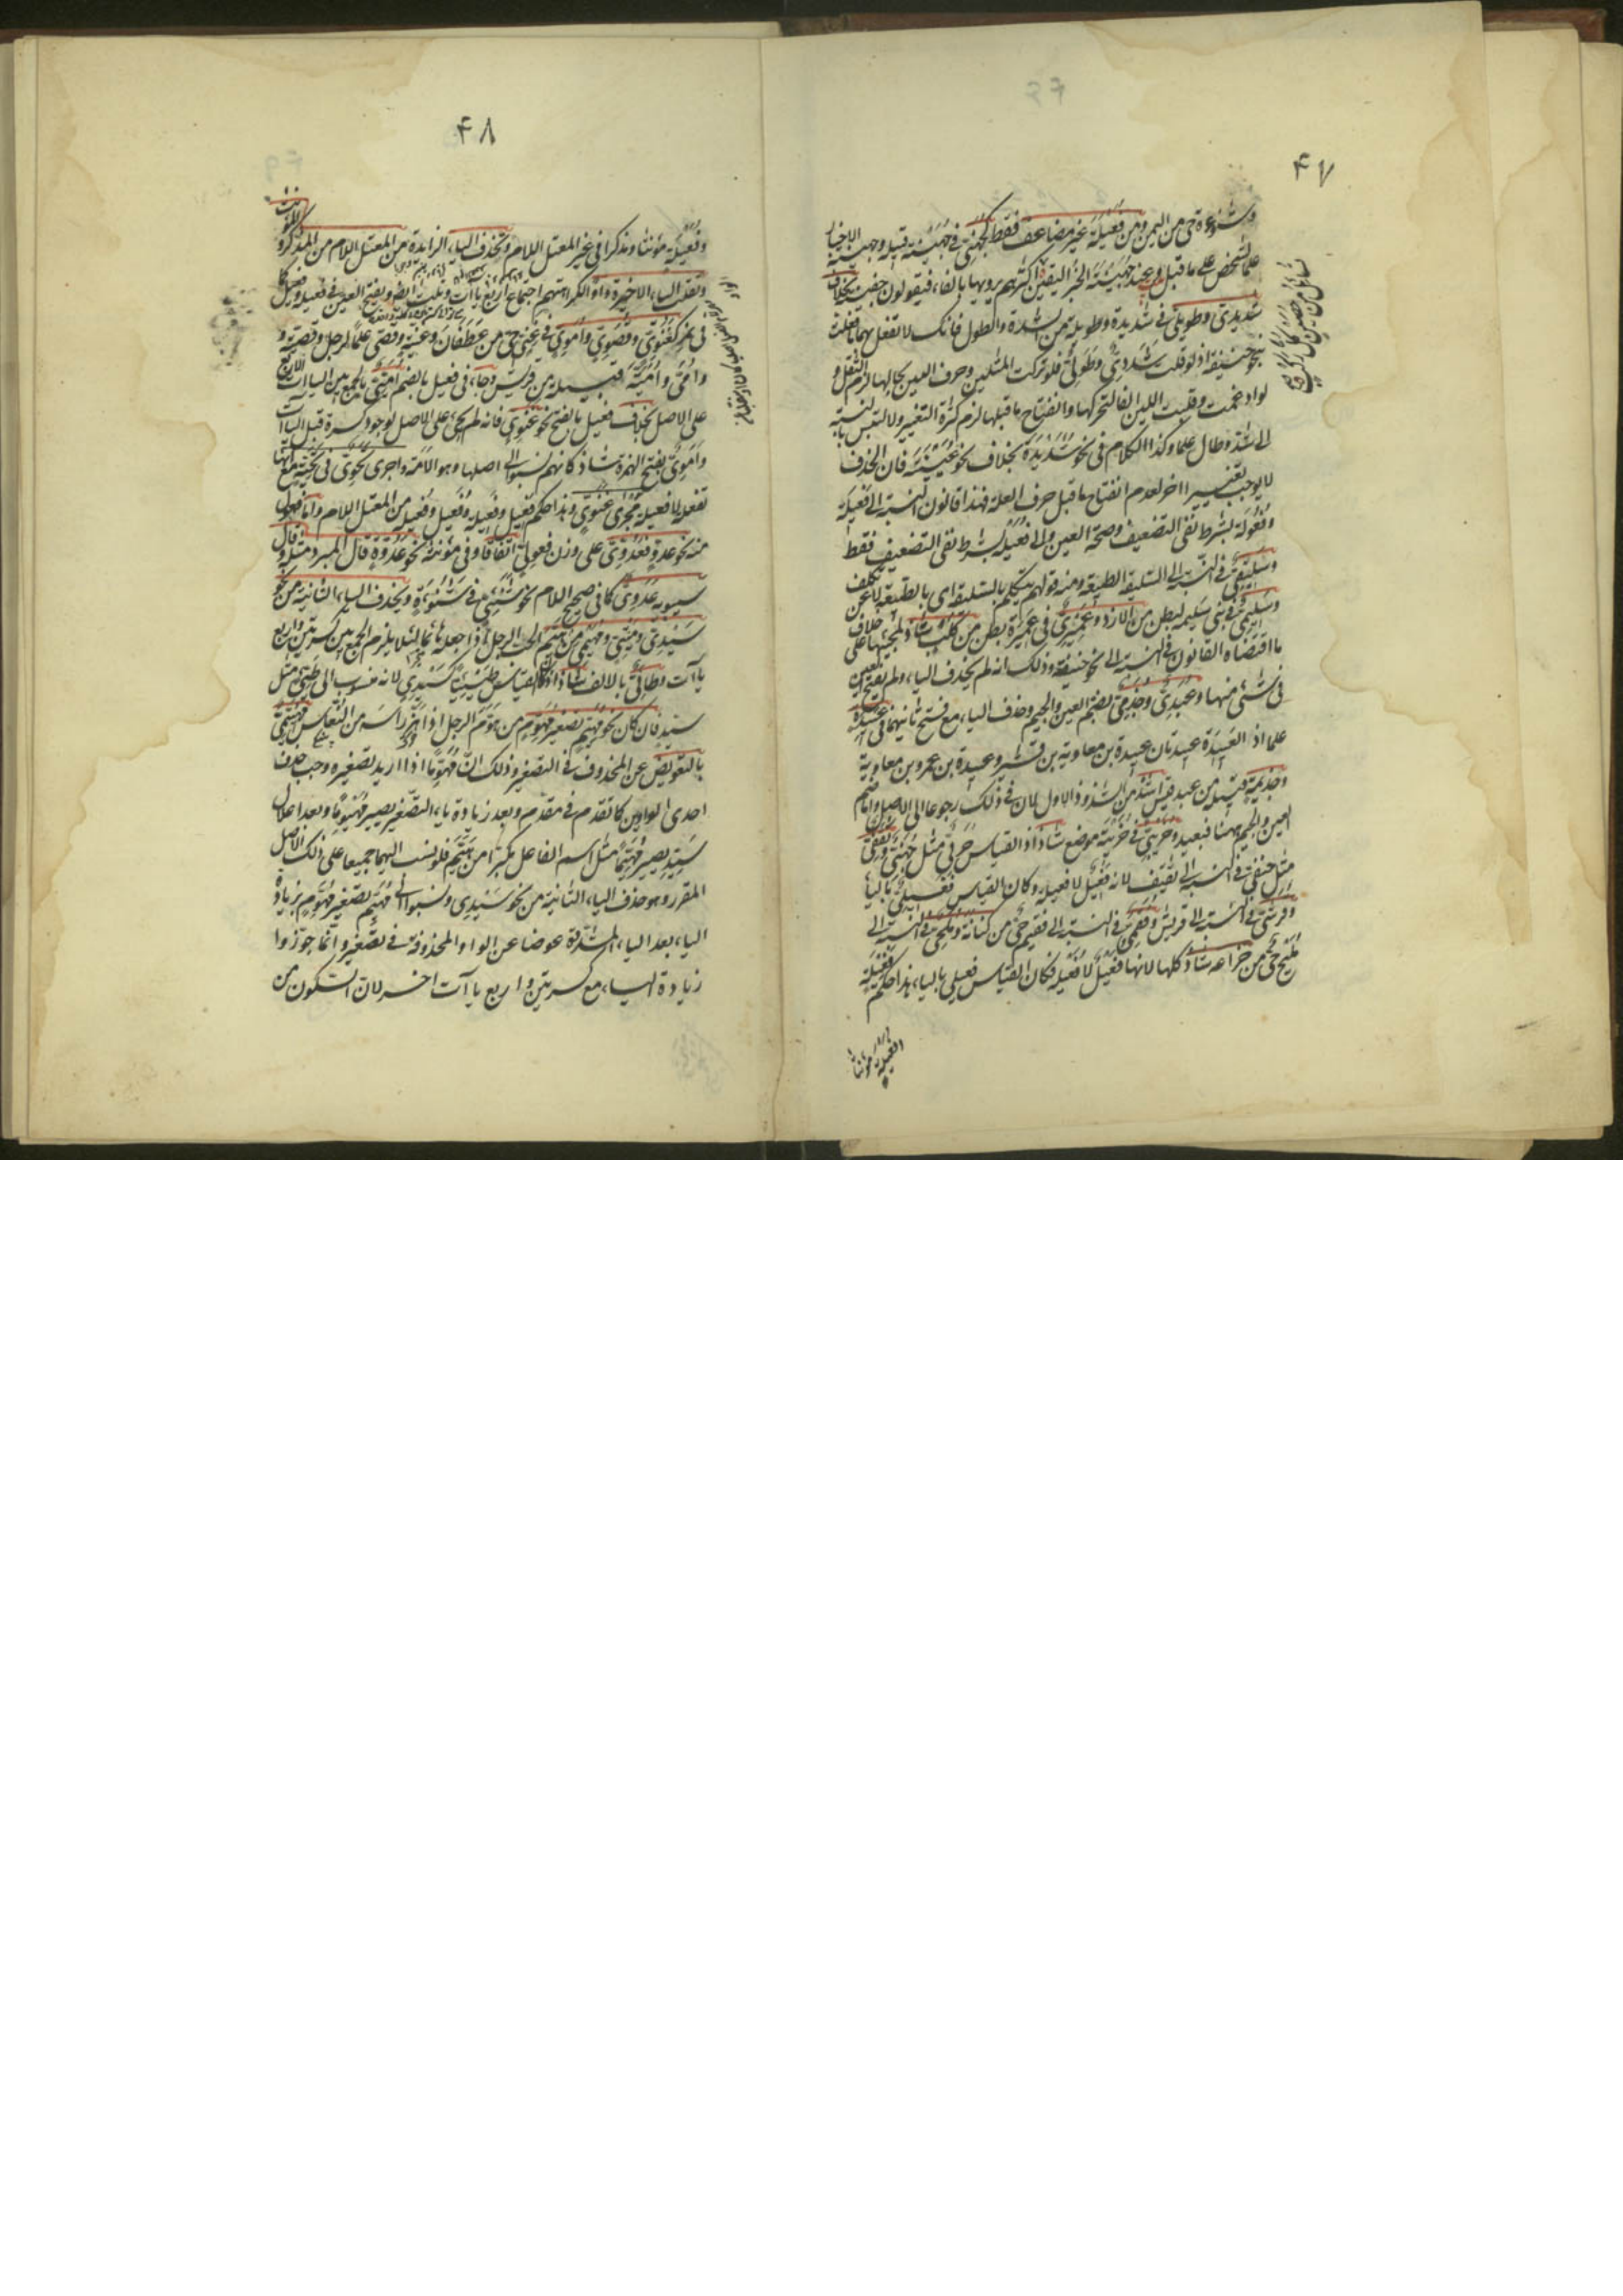 ۴۷
وشنوءة حى من اليمن ومن فُعَيْلَة غير مضاعف فقط كجُهَنِىّ فى جُهَيْنَة قبيلة وجهينة الاخبار
علما لشخص على ما قيل وعند جهينة الخبر اليقين اكثرهم يرويها بالفاء فيقولون جفينة بخلاف
شديدى وطويلى فى شديدة وطويلة من الشدة والطول فانك لا تفعل بهما ما فعلت
بنحو حنيفة اذ لو قلت شَدَدِىّ وطَوَلِىّ فلو تركت المثلين وحرف العين بحالها لزم الثقل و
لو ادغمت وقلبت اللين الفا لتحركها وانفتاح ما قبلها لزم كثرة التغيير ولالتبس بالنسبة
الى شدّ وطال علما وكذا الكلام فى نحو شديدة بخلاف نحو عُيَيْنَة فان الحذف
لا يوجب تغييرا اخر لعدم انفتاح ما قبل حرف العلة فهذا قانون النسبة الى فَعِيلَة
وفَعُولَة بشرط نفى التضعيف وصحة العين والى فُعَيْلَة بشرط نفى التضعيف فقط
وسَلِيقِىّ فى النسبة الى السليقة الطبيعة ومنه قولهم يتكلم بالسليقة اى بالطبيعة لا عن تكلف
وسَلِيمِىّ فى بنى سَلِيمة لبطن من الازد وعَمِيرِىّ فى عَمِيرة بطن من كلب شاذ لمجيئها على خلاف
ما اقتضاه القانون فى النسبة الى نحو حنيفة وذلك انه لم يحذف الياء ولم يفتح العين
فى شئ منها وعُبَدِىّ وجُذَمِىّ بضم العين والجيم وحذف الياء مع فتح ثانيهما فى عَبِيدة
علما اذ العبيدة عبيدتان عبيدة بن معاوية بن قشير وعبيدة بن عمرو بن معاوية
وجذيمة قبيلة من عبد قيس اشذ من الشذوذ الاول لان فى ذلك رجوعا الى الاصل واما ضم
العين والجيم ههنا فبعيد وخُرَيْبِىّ فى خُرَيْبَة موضع شاذ اذ القياس خُرَبِىّ مثل جُهَنِىّ وثَقَفِىّ
مثل حنفى فى النسبة الى ثقيف لانه فعيل لا فعيلة وكان القياس فعيلى بالياء
وقُرَشِىّ فى النسبة الى قريش وفُقَمِىّ فى النسبة الى فقيم حى من كنانة ومُلَحِىّ فى النسبة الى
مُلَيْح حى من خزاعة شاذ كلها لانها فُعَيْل لا فُعَيْلة فكان القياس فعيلى بالياء هذا حكم فَعِيلَة
وفُعَيلَة مؤنثا
۴۸
وفُعَيْلَة مؤنثا ومذكرا فى غير المعتل اللام وتحذف الياء الزايدة من المعتل اللام من المذكر و المؤنث
وتقلب الياء الاخيرة واوا لكراهتهم اجتماع اربع ياآت
فى نحو كغَنَوِىّ وقُصَوِىّ واُمَوِىّ فى غَنِىّ حى من غطفان وغنية وقصى علما لرجل وقصية و
واُمَىّ واُمَيَّة قبيلة من قريش وجاء فى فعيل بالضم اُمَيِّىّ بالجمع بين الياءات الاربع
على الاصل بخلاف فعيل بالفتح نحو غنوى فانه لم يجئ على الاصل لوجود كسرة قبل الياآت
واَمَوِىّ بفتح الهمزة شاذ كانهم نسبوا الى اصلها وهو الاَمَة واجرى تحوى فى تحيّة مع انها
تفعلة لا فعيلة مجرى غنوى وهذا حكم فعيل وفعيلة وفُعيل وفُعيلة من المعتل اللام واما فعول
منه نحو عدوّ فعَدُوِّىّ على وزن فعولى اتفاقا وفى مؤنثه نحو عَدُوَّة قال المبرد مثله وقال
سيبويه عَدَوِىّ كما فى صحيح اللام نحو شَنَئِىّ فى شَنُوءَة ويحذف الياء الثانية من نحو
سَيِّدِىّ ومَيِّتِىّ ومُهَيِّمِىّ من هَيَّمَ الحب الرجل اذا جعله هائما لئلا يلزم الجمع بين كسرتين واربع
ياآت وطائى بالالف شاذ اذ كان القياس طَيْئِيّا كسَيْدِى لانه منسوب الى طَيِّئ مثل
سيد فان كان نحو مُهَيِّيم تصغير مُهَوِّم من هَوَّمَ الرجل اذا هز راسه من النعاس قيل مُهَيِّيمِىّ
بالتعويض عن المحذوف فى التصغير وذلك ان مُهَوِّما اذا اريد تصغيره وجب حذف
احدى الواوين كما تقدم فى مقدم وبعد زيادة ياء التصغير يصير مُهَيْوِمًا وبعد اعلال
سَيِّد يصير مُهَيِّمًا مثل اسم الفاعل مكبرا من هَيَّمَ فلو نسب اليهما جميعا على ذلك الاصل
المقرر وهو حذف الياء الثانية من نحو سَيِّدِى ونسبوا الى مُهَيِّم تصغير مُهَوِّم بزيادة
الياء بعد الياء المشددة عوضا عن الواو المحذوفة فى تصغيره وانما جوّزوا
زيادة الياء مع كسرتين واربع ياآت اخر لان السكون من